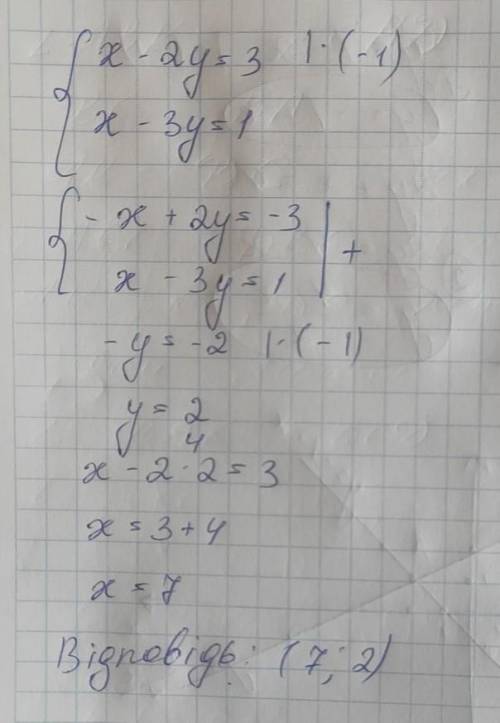 { x - 2y = 3 | · (-1)
x - 3y = 1
{ - x + 2y = -3 | +
x - 3y = 1
- y = -2 | · (-1)
y = 2
4
x - 2 · 2 = 3
x = 3 + 4
x = 7
Відповідь: (7; 2)